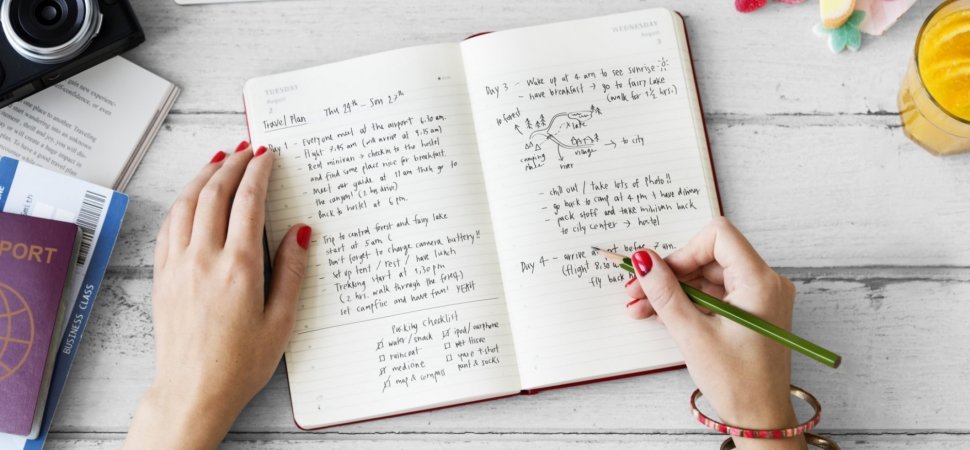 TUESDAY
August
2
Travel Plan Thu 24th - Sun 27th
Day 1 - Everyone meet at the airport 6.30 am.
- Flight 7.45 am (will arrive at 9.15 am)
- Rent minivan → checkin to the hostel
and find some place nice for breakfast.
- Meet our guide at 11 am then go to
the canyon! (2 hrs drive)
- Back to hostel at 6 pm.
- Trip to central forest and fairy lake
start at 5 am
- Don't forget to change camera battery!!
- Set up tent / rest / have lunch
- Trekking start at 1:30 pm
(2 hrs. walk through the forest)
- set campfire and have fun! YEAH
Packing Checklist
water/snack
raincoat
medicine
map & compass
ipod/earphone
wet tissue
spare t-shirt
pant & socks
WEDNESDAY
August
3
Day 3 - Wake up at 4 am to see sunrise
- have breakfast → go to fairy lake
(walk for 1 1/2 hrs.)
to forest
lake
camping
village
→ to city
- chill out / take lots of photo!!
- go back to camp at 4 pm + have dinner
- pack stuff and take minivan back
to city center → hostel
Day 4 - arrive at before 7 am
(flight 8.30
fly back
PORT
BUSINESS CLASS
new experien-
confidence.
one place to another. Traveling